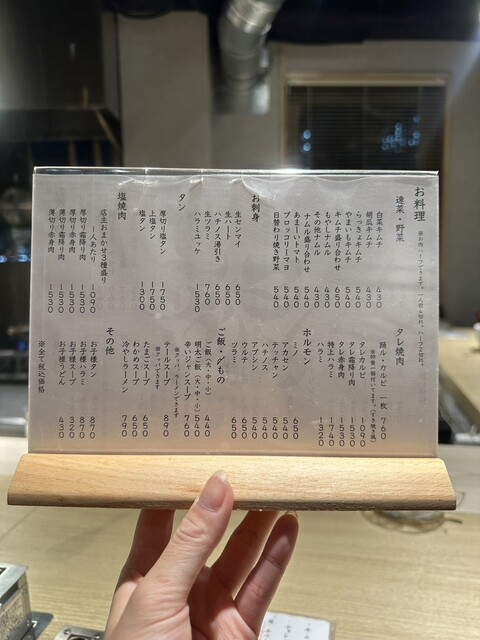 お料理
速菜・野菜
白菜キムチ 430
胡瓜キムチ 430
らっきょキムチ 540
やまいもキムチ 540
キムチ盛り合わせ 650
もやしナムル 430
その他ナムル 430
ナムル盛り合わせ 540
あまーいトマト 540
ブロッコリーマヨ 540
日替わり焼き野菜 540
お刺身
生センマイ 650
生ハート 650
ハチノス湯引き 650
生ツラミ 760
ハラミユッケ 1530
タン
厚切り塩タン 1750
上塩タン 1750
塩タン 1300
塩焼肉
店主おまかせ3種盛り
一人あたり 1090
厚切り霜降り肉 1530
厚切り赤身肉 1530
薄切り霜降り肉 1530
薄切り赤身肉 1530
タレ焼肉
踊ル・カルビ 一枚 760
タレカルビ 1090
タレ霜降り肉 1530
タレ赤身肉 1530
特上ハラミ 1740
ハラミ 1320
ホルモン
アカセン 650
テッチャン 540
ハチノス 540
アブシン 540
ウルテ 650
ツラミ 650
ご飯・〆もの
ご飯(大・中・小) 440
明太ご飯(大・中・小) 540
辛いジャンスープ 760
テールスープ 890
たまごスープ 650
わかめスープ 650
冷やしラーメン 790
その他
お子様タン 870
お子様ハラミ 870
お子様カレー 320
お子様うどん 430
※全て税込価格